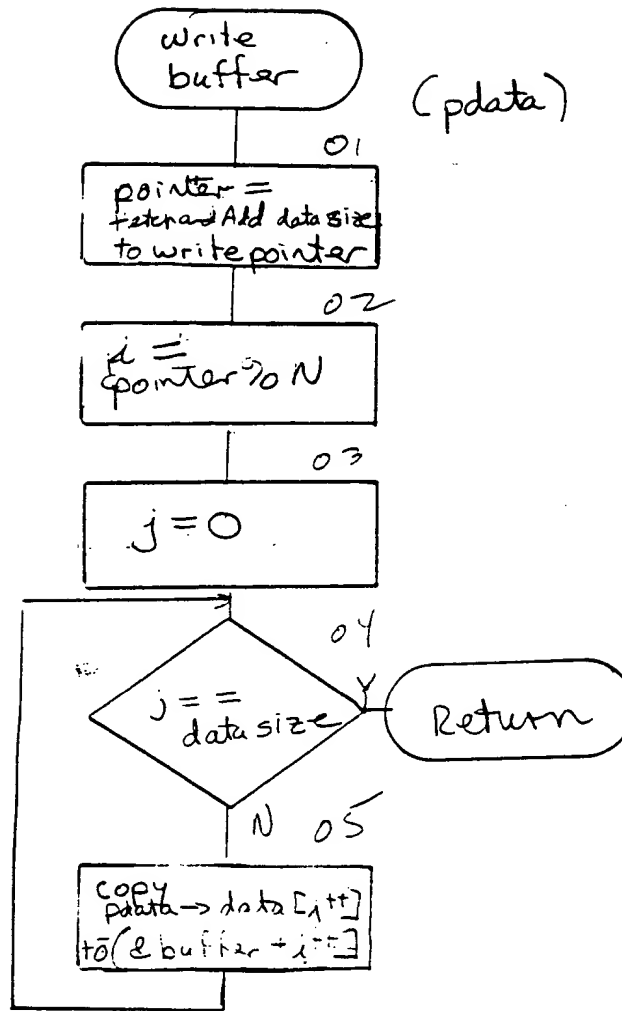 write
buffer
(pdata)
01
pointer =
Fetch and Add data size
to write pointer
02
i =
pointer % N
03
j = 0
04
j = =
data size
Y
Return
N 05
copy
pdata → data [j++]
to (& buffer + i++]